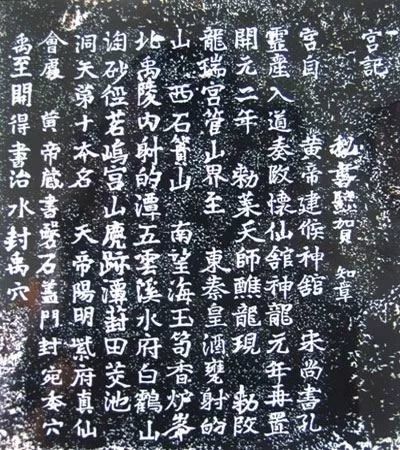 宮記
秘書監賀 知章
宮自 黃帝建候神舘 宋尚書孔
靈產入道奏改懷仙舘神龍元年再置
開元二年 勅葉天師醮龍現 勅改
龍瑞宮管山界至 東秦皇酒甕射的
山 西石簣山 南望海玉笥香炉峯
北禹陵內射的潭五雲溪水府白鶴山
淘砂徑茗塢宮山鹿跡潭葑田茭池
洞天第十本名 天帝陽明紫府真仙
會處 黃帝藏書磐石盖門封宛委穴
禹至開得書治水封禹穴